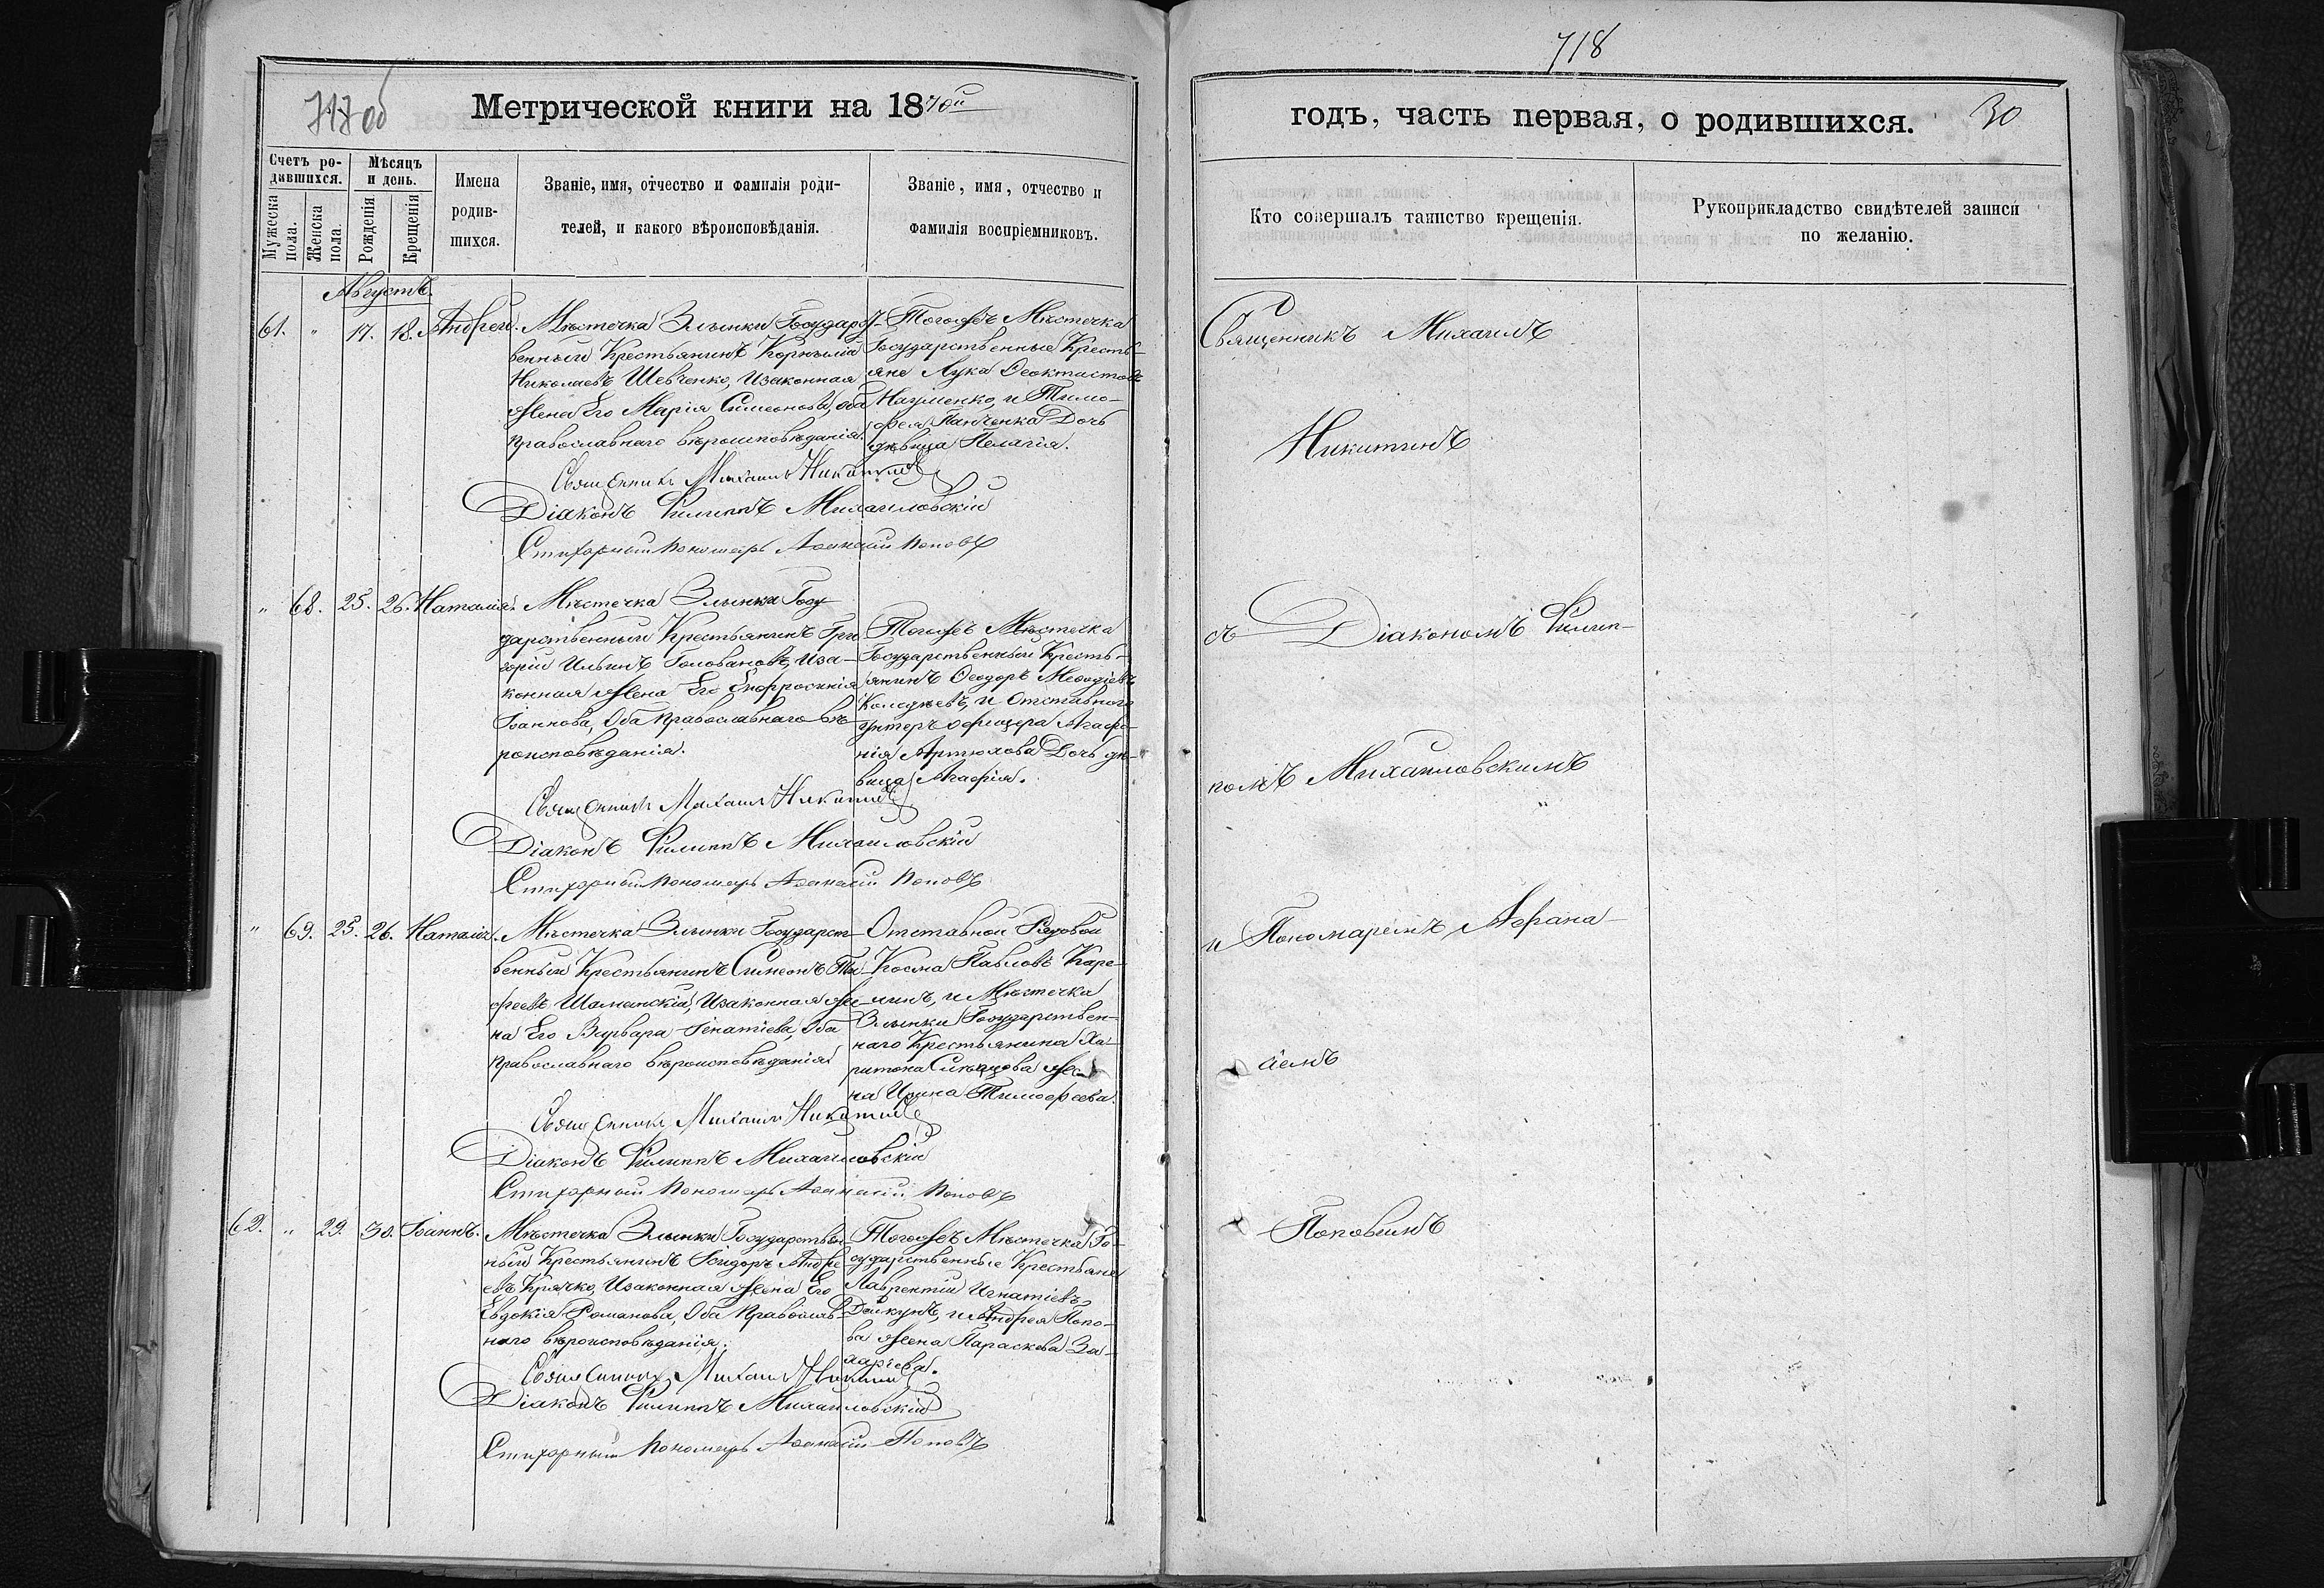 717 об
Метрической книги на 1870й
Счетъ ро-
дившихся.
Мѣсяцъ
и день.
Мужеска
пола.
Женска
пола.
Рожденія
Крещенія
Имена
родив-
шихся.
Званіе, имя, отчество и фамилія роди-
телей, и какого вѣроисповѣданія.
Званіе, имя, отчество и
фамилія воспріемниковъ.
Августъ.
61. " 17. 18. Андрей.
Мѣстечка Злынки Государст-
венный Крестьянинъ Корнилій
Николаевъ Шевченко, и законная
жена Его Марія Симеонова, оба
православнаго вѣроисповѣданія.
Тогожъ Мѣстечка
Государственные Кресть-
яне Лука Феоктистовъ
Науменко, и Тимо-
фея Панченка Дочь
дѣвица Пелагія.
Священникъ Михаилъ Никитинъ
Діаконъ Филиппъ Михайловскій
Стихарный Пономарь Афанасій Поповъ
" 68. 25. 26. Наталія.
Мѣстечка Злынки Госу
дарственный Крестьянинъ Гри
горій Ильинъ Головановъ, и за-
конная жена Его Евфросинія
Іоаннова, Оба Православнаго вѣ-
роисповѣданія.
Тогожъ Мѣстечка
Государственный Кресть-
янинъ Феодоръ Мефодіевъ
и Отставнаго
унтеръ офицера Агафо-
нія Артюхова Дочь дѣ-
вица Агафія.
Священникъ Михаилъ Никитинъ
Діаконъ Филиппъ Михайловскій
Стихарный Пономарь Афанасій Поповъ
" 69. 25. 26. Наталія.
Мѣстечка Злынки Государст-
венный Крестьянинъ Симеонъ Ти-
феевъ Шаманскій, и законная же-
на Его Варвара Игнатіева, Оба
Православнаго вѣроисповѣданія
Отставной Рядовой
Косма Павловъ Каре-
линъ, и Мѣстечка
Злынки Государствен-
наго Крестьянина Ха-
ритона жe-
на Ирина Тимофеева.
Священникъ Михаилъ Никитинъ
Діаконъ Филиппъ Михайловскій
Стихарный Пономарь Афанасій Поповъ
62. " 29. 30. Іоаннъ.
Мѣстечка Злынки Государствен
ный Крестьянинъ Ісидоръ Андре-
евъ Крячко, и законная жена Его
Евдокія Романова, Оба Православ-
наго вѣроисповѣданія.
Тогожъ Мѣстечка Го-
сударственные Крестьяне
Лаврентій Игнатіевъ
Дейкунъ, и Андрея Попо-
ва жена Параскева За-
харіева.
Священникъ Михаилъ Никитинъ
Діаконъ Филиппъ Михайловскій
Стихарный Пономарь Афанасій Поповъ
718
годъ, часть первая, о родившихся. 30
Кто совершалъ таинство крещенія.
Рукоприкладство свидѣтелей записи
по желанію.
Священникъ Михаилъ
Никитинъ
съ Діакономъ Филип-
помъ Михайловскимъ
и Пономаремъ Афана-
сіемъ
Поповымъ